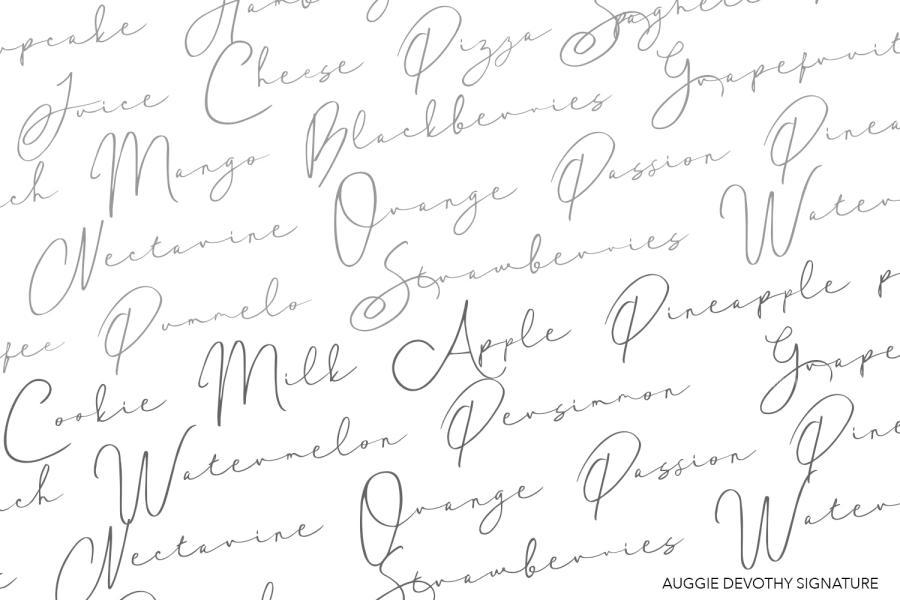 upcake Hamb
Juice Cheese Pizza Spaghett
ch Mango Blackberries Grapefruit
Nectarine Orange Passion Pinea
ffee Pummelo Strawberries Water
Cookie Milk Apple Pineapple p
ch Watermelon Persimmon Grape
Nectarine Orange Passion Pine
Strawberries Water
AUGGIE DEVOTHY SIGNATURE